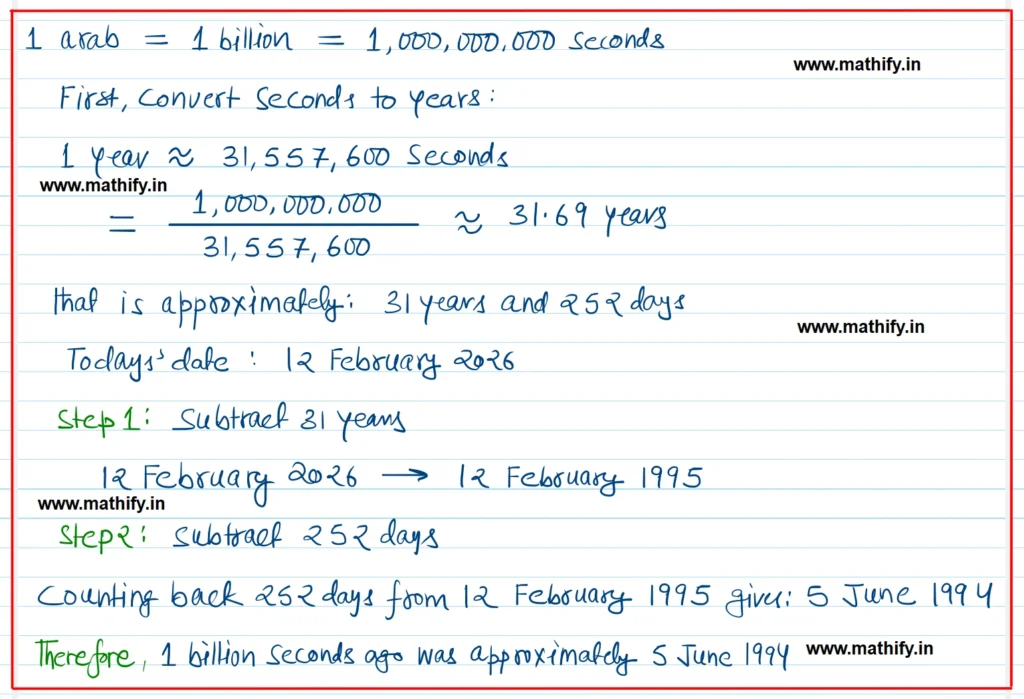 1 arab = 1 billion = 1,000,000,000 seconds
www.mathify.in
First, convert seconds to years:
1 year ≈ 31,557,600 seconds
www.mathify.in
= 1,000,000,000 / 31,557,600 ≈ 31.69 years
that is approximately: 31 years and 252 days
www.mathify.in
Todays' date : 12 February 2026
Step 1: Subtract 31 years
12 February 2026 → 12 February 1995
www.mathify.in
Step 2: Subtract 252 days
Counting back 252 days from 12 February 1995 gives: 5 June 1994
Therefore, 1 billion seconds ago was approximately 5 June 1994 www.mathify.in